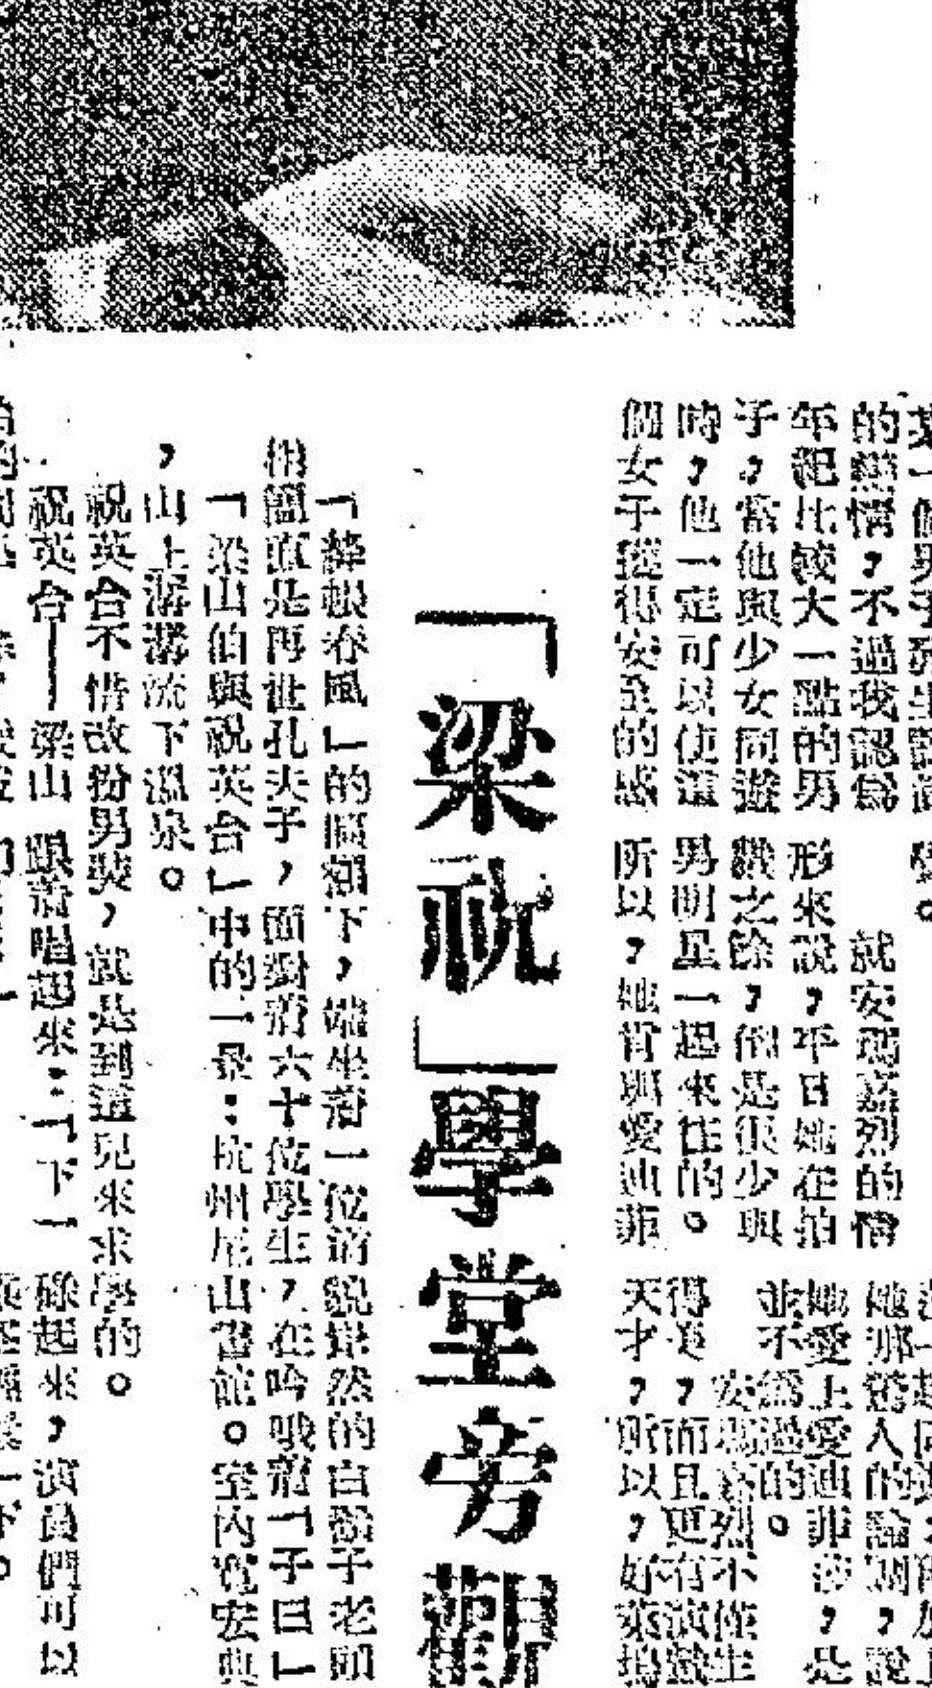 的戀情，不過我認爲
年紀比較大一點的男
子，當他與少女同遊
時，他一定可以使這
個女子獲得安全的感
覺。
就安瑪嘉烈的情
形來說，平日她在拍
戲之除，倒是很少與
男明星一起來往的。
所以，她肯與愛迪菲
她那驚人的論調，說
她愛上愛迪菲沙，是
並不爲過的。
安瑪嘉烈不僅生
得美，而且更有演戲
天才，所以，好萊塢
「梁祝」學堂旁觀
「絳帳春風」的匾額下，端坐着一位道貌岸然的白鬍子老頭
簡直是再世孔夫子，面對着六十位學生，在吟哦着「子曰」
「梁山伯與祝英台」中的一景：杭州尼山書館。室內寬宏典
，山上潺潺流下溫泉。
祝英台不惜改扮男裝，就是到這兒來求學的。
祝英台——梁山
跟着唱起來：「下一
碌起來，演員們可以